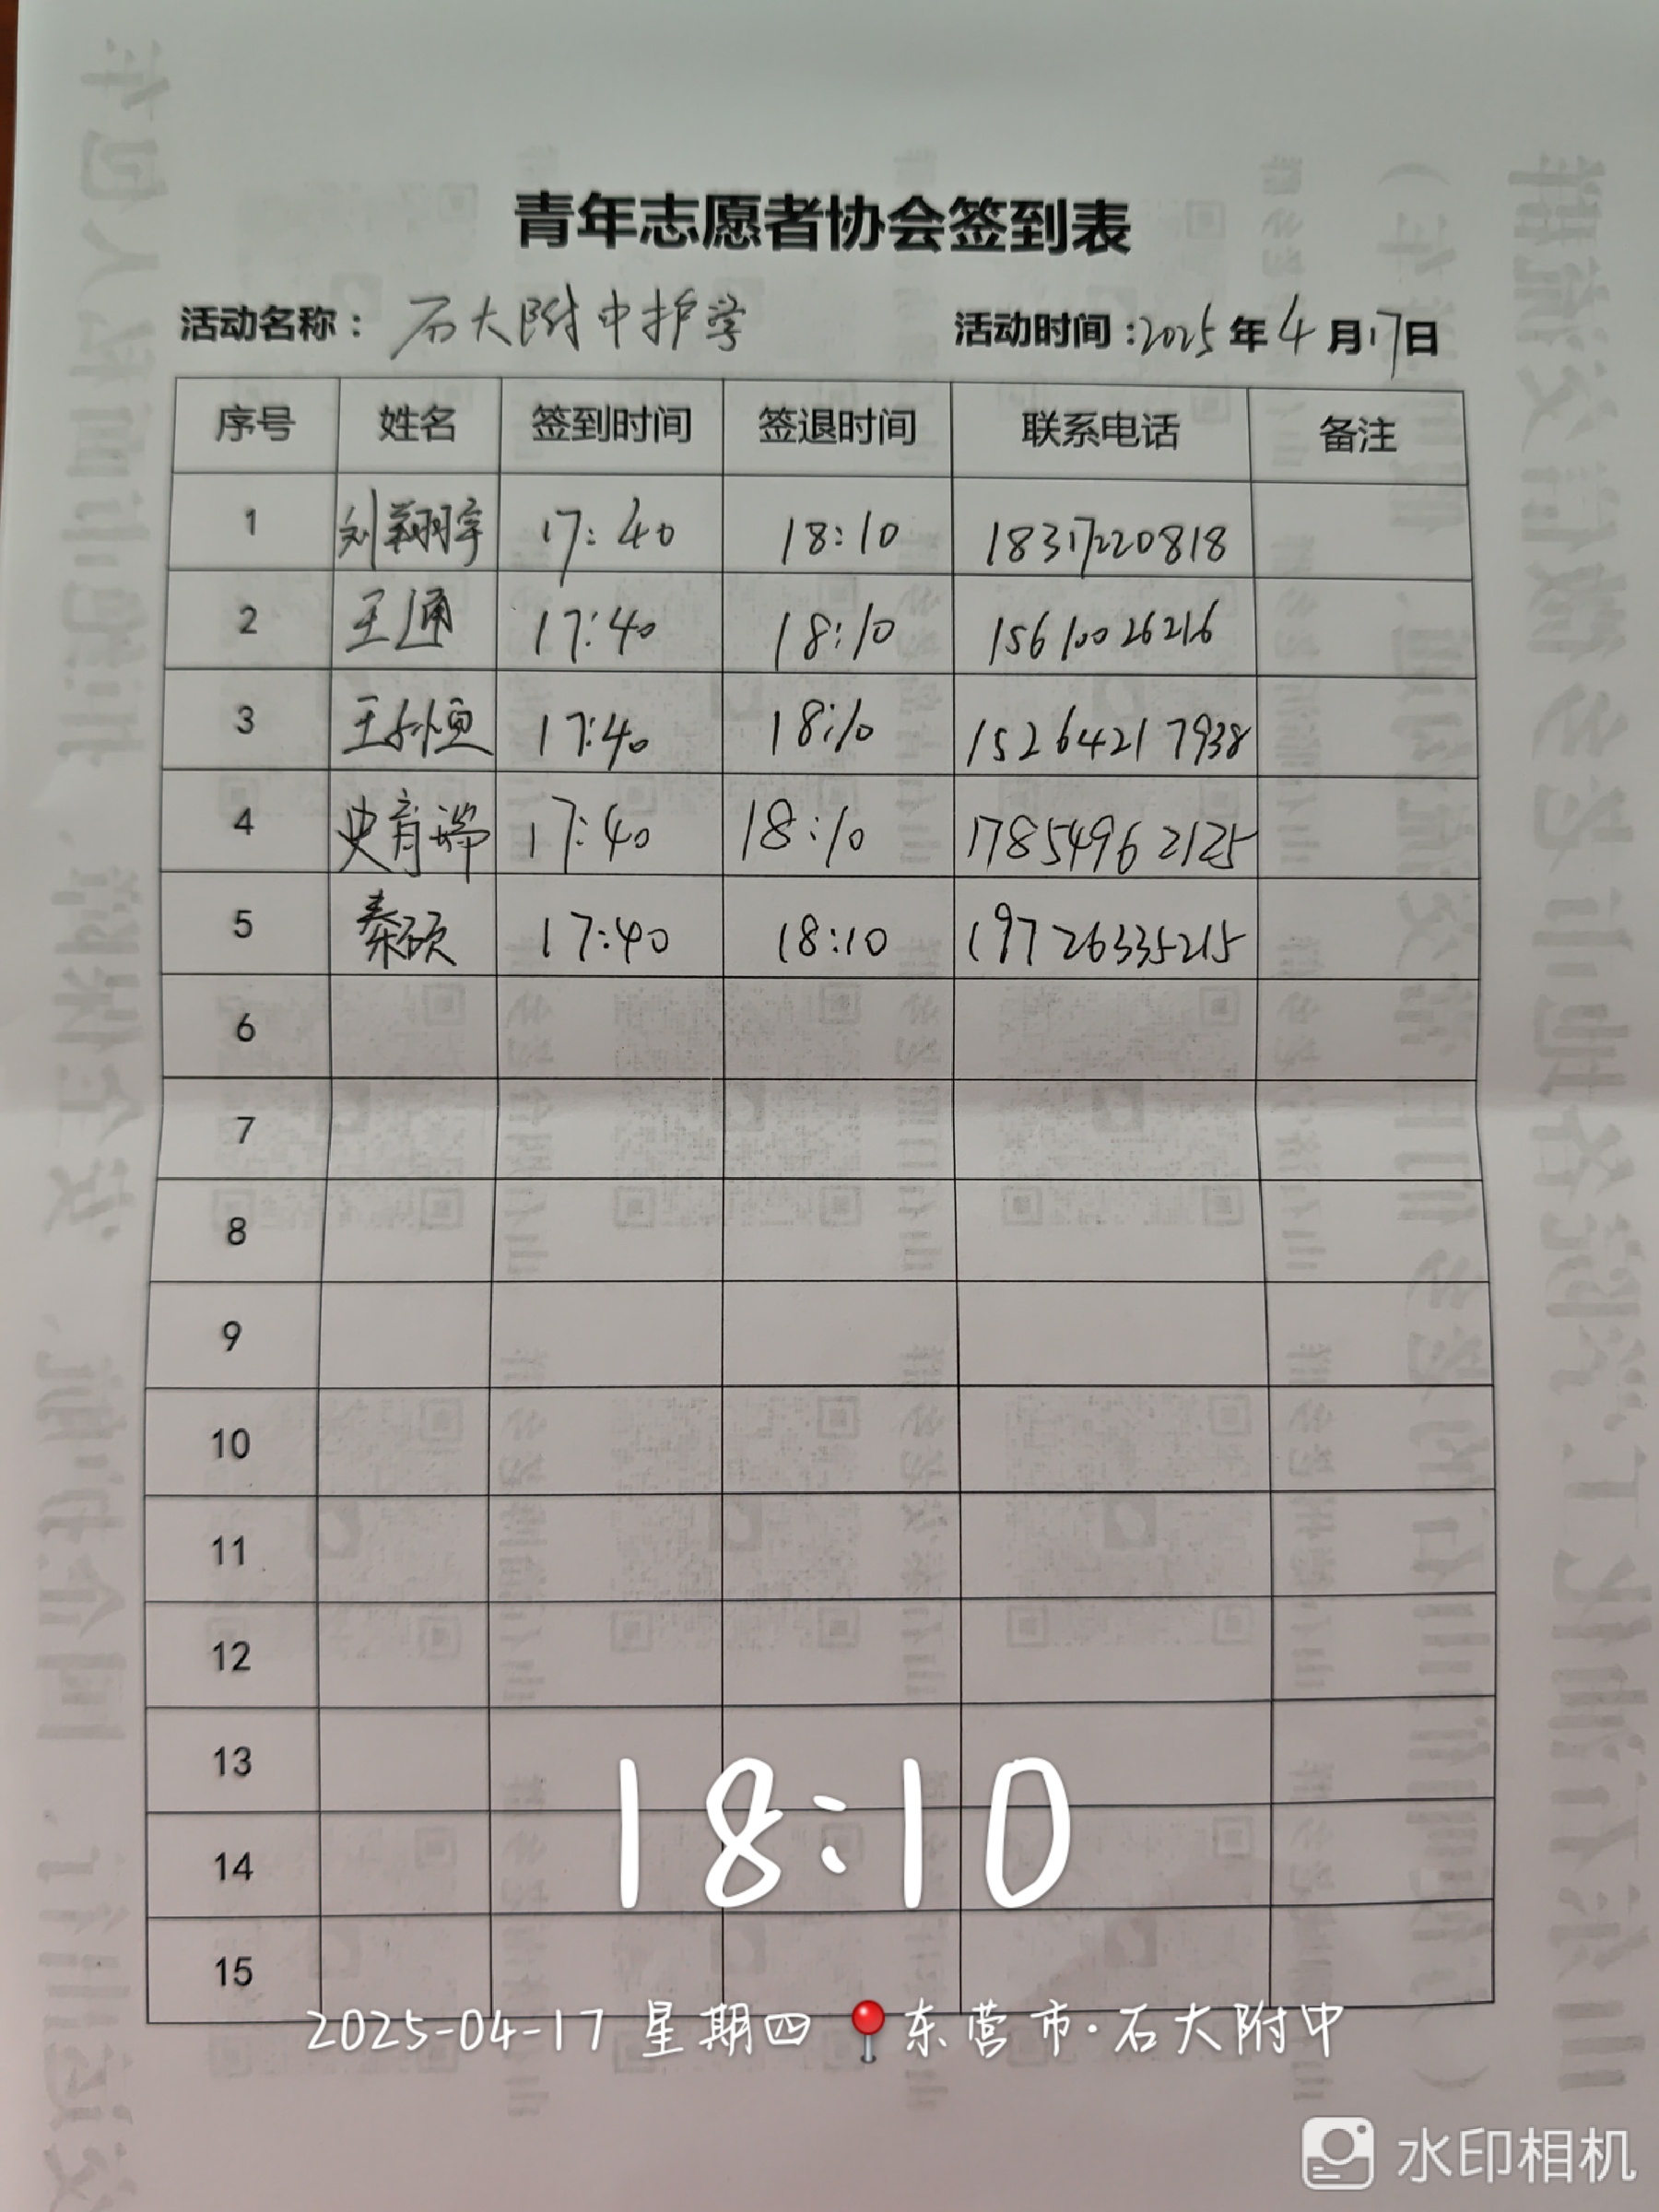 青年志愿者协会签到表
活动名称：石大附中护学 活动时间：2025年4月17日
序号 姓名 签到时间 签退时间 联系电话 备注
1 刘翔宇 17:40 18:10 18317220818
2 王通 17:40 18:10 15610026216
3 17:40 18:10 15264217938
4 史育瑞 17:40 18:10 17854962125
5 秦硕 17:40 18:10 19726335215
6
7
8
9
10
11
12
13
14
15
18:10
2025-04-17 星期四 东营市·石大附中
水印相机